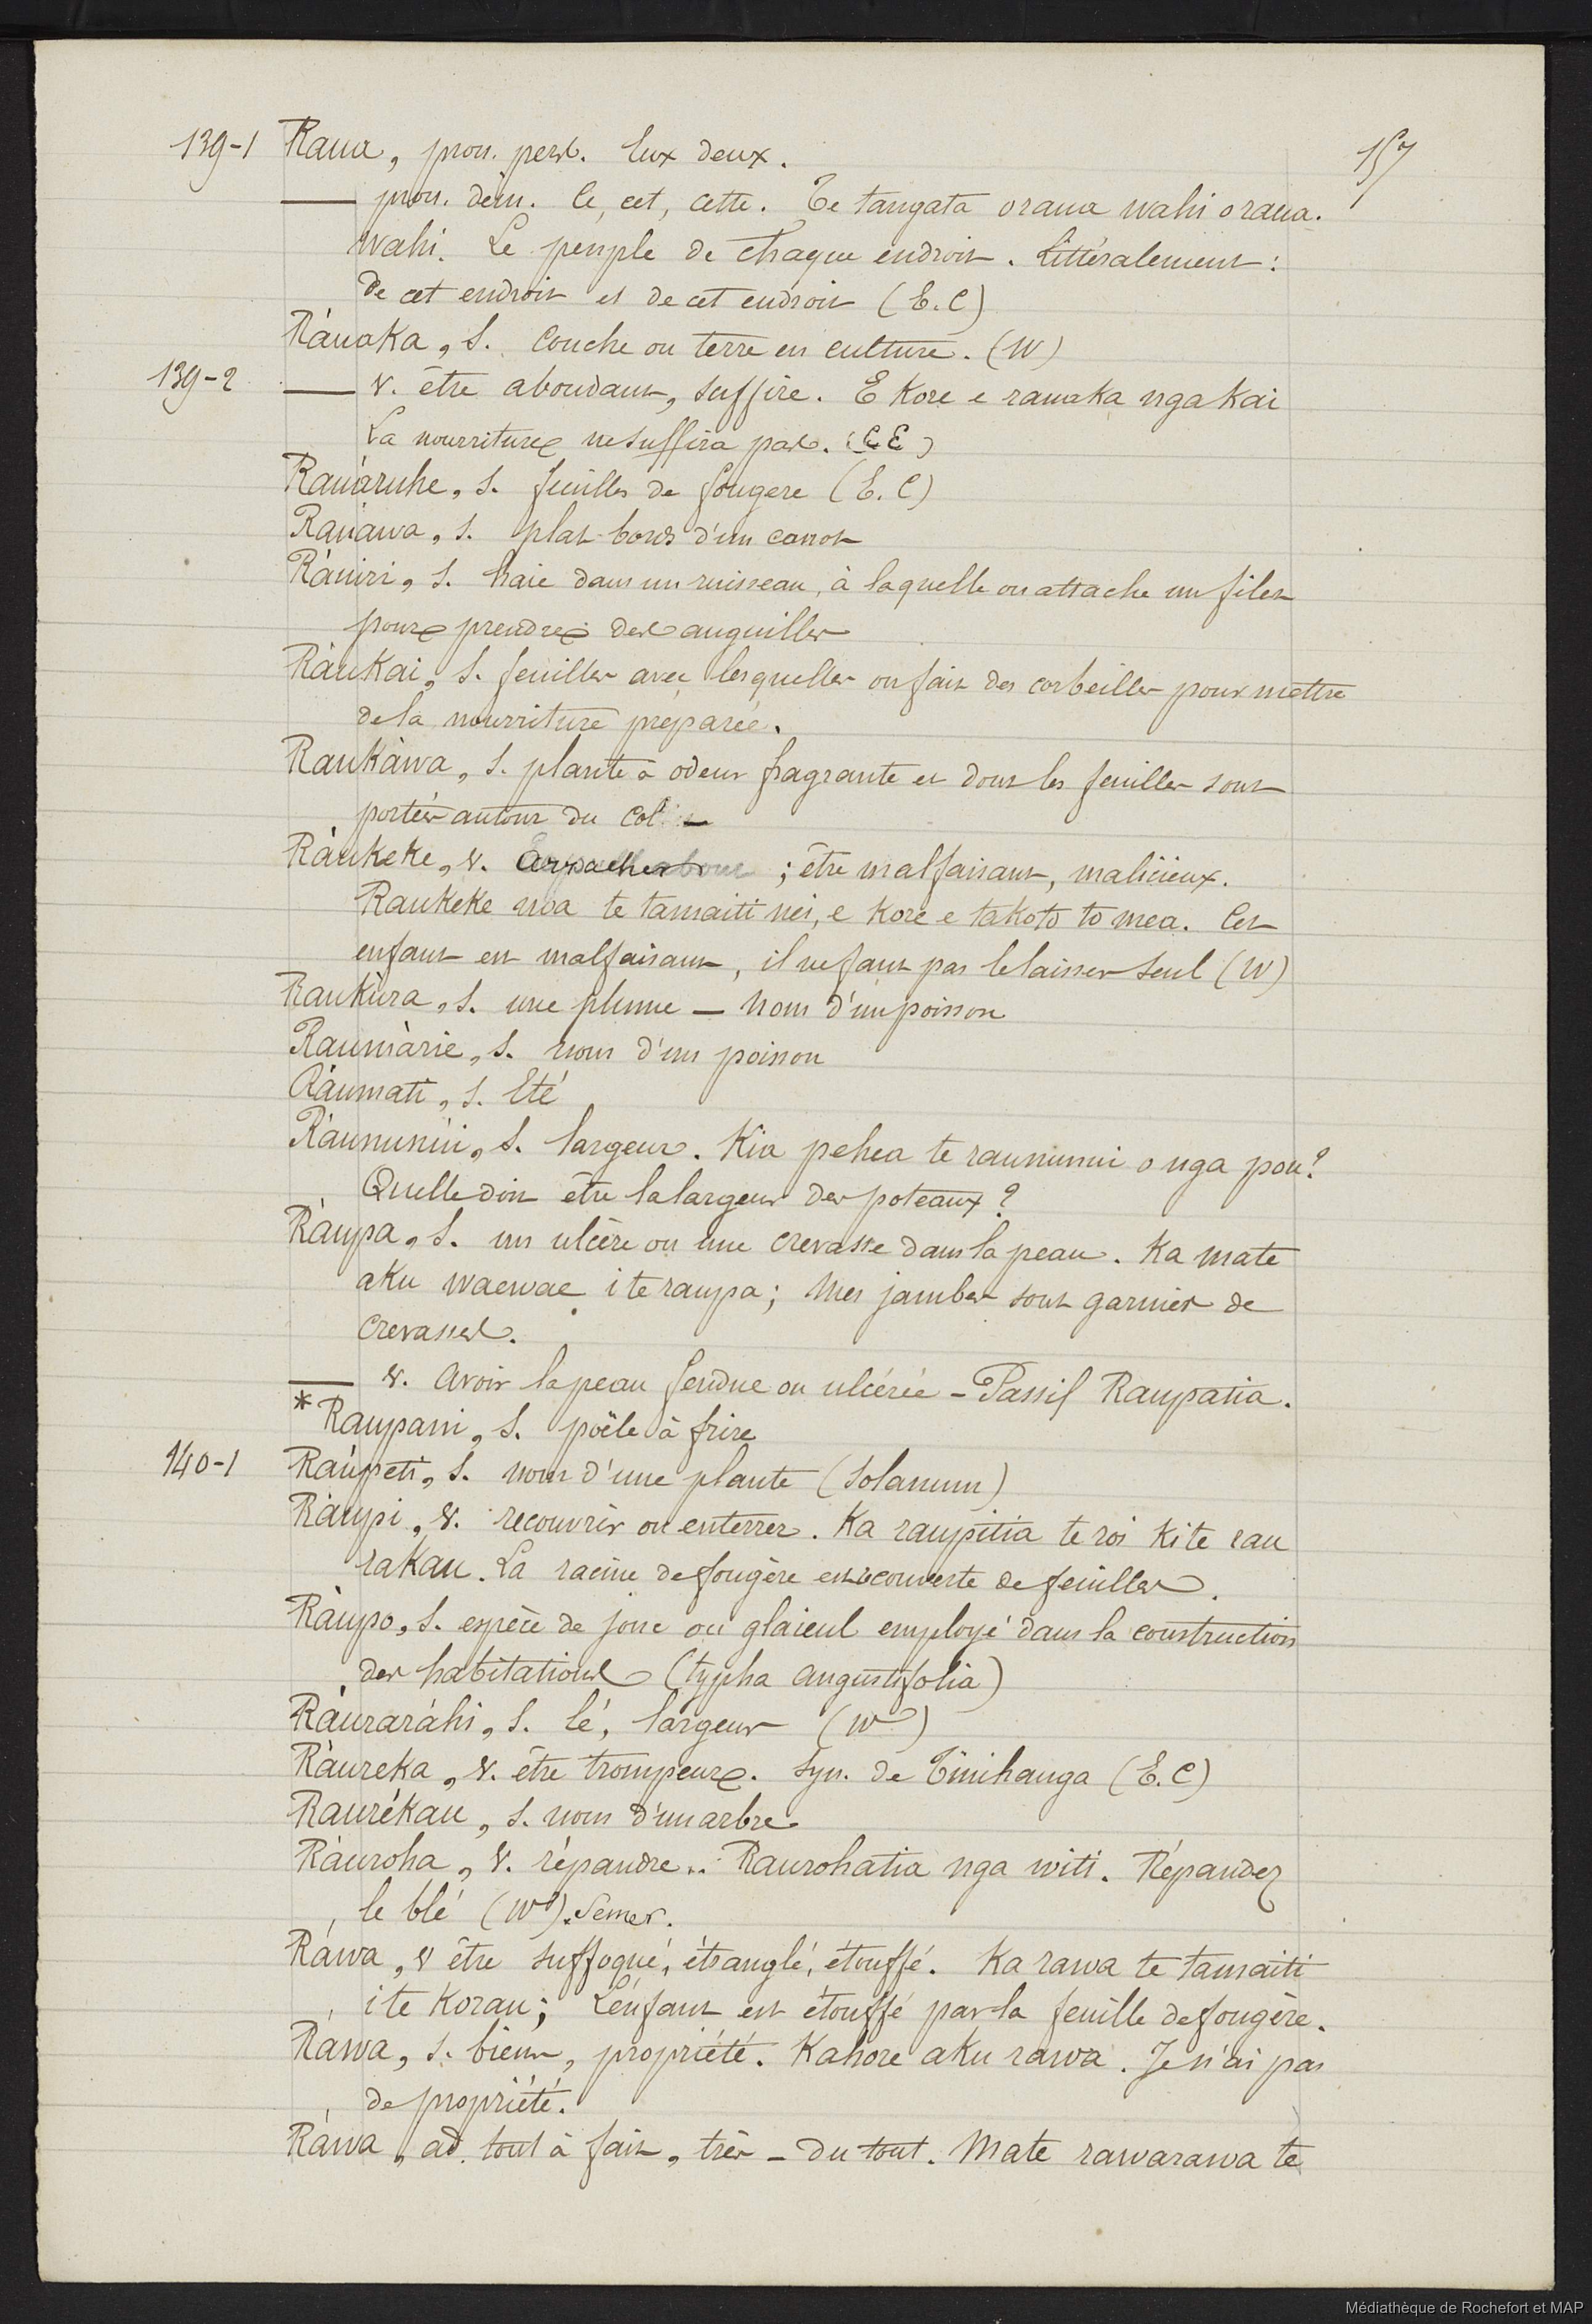 157
139-1 Raua, pron. pers. Eux deux.
—— pron. dém. Ce, cet, cette. Te tangata oraua wahi oraua.
wahi. Le peuple de chaque endroit. Littéralement :
de cet endroit et de cet endroit (E.C)
Ráuaka, s. Couche ou terre en culture. (W)
139-2 —— v. être abondant, suffire. E kore e rauaka nga kai
La nourriture ne suffira pas. (C E)
Rauáruhe, s. feuilles de fougère (E. C)
Rauáwa, s. plat bords d'un canot
Ráuiri, s. haie dans un ruisseau, à laquelle on attache un filet
pour prendre des anguilles
Ráukai, s. feuilles avec lesquelles on fait des corbeilles pour mettre
de la nourriture préparée.
Raukáwa, s. plante à odeur fragrante et dont les feuilles sont
portées autour du col
Ráukeke, v. Arracher ; être malfaisant, malicieux.
Raukeke noa te tamaiti nei, e kore e takoto to mea. Cet
enfant est malfaisant, il ne faut pas le laisser seul (W)
Raukúra, s. une plume — Nom d'un poisson
Raumárie, s. nom d'un poisson
Ráumati, s. Eté
Ráununúi, s. largeur. Kia pehea te raununui o nga pou?
Quelle doit être la largeur des poteaux ?
Ráupa, s. un ulcère ou une crevasse dans la peau. Ka mate
aku waewae i te raupa; Mes jambes sont garnies de
crevasses.
—— v. Avoir la peau fendue ou ulcérée - Passif Raupatia.
* Raupani, s. poële à frire
140-1 Raúpeti, s. nom d'une plante (Solanum)
Ráupi, v. recouvrir ou enterrer. Ka raupitia te roi ki te rau
rakau. La racine de fougère est recouverte de feuilles.
Ráupo, s. espèce de jonc ou glaieul employé dans la construction
des habitations (typha angustifolia)
Ráuraráhi, s. lé, largeur (W)
Ráureka, v. être trompeur. Syn. de Tinihanga (E.C)
Raurékau, s. nom d'un arbre
Ráuroha, v. répandre. Raurohatia nga witi. Répandez
le blé (W). Semer.
Ráwa, v être suffoqué, étranglé, étouffé. Ka rawa te tamaiti
i te Korau; L'enfant est étouffé par la feuille de fougère.
Ráwa, s. biens, propriété. Kahore aku rawa. Je n'ai pas
de propriété.
Ráwa, ad. tout à fait, très - du tout. Mate rawarawa te
Médiathèque de Rochefort et MAP